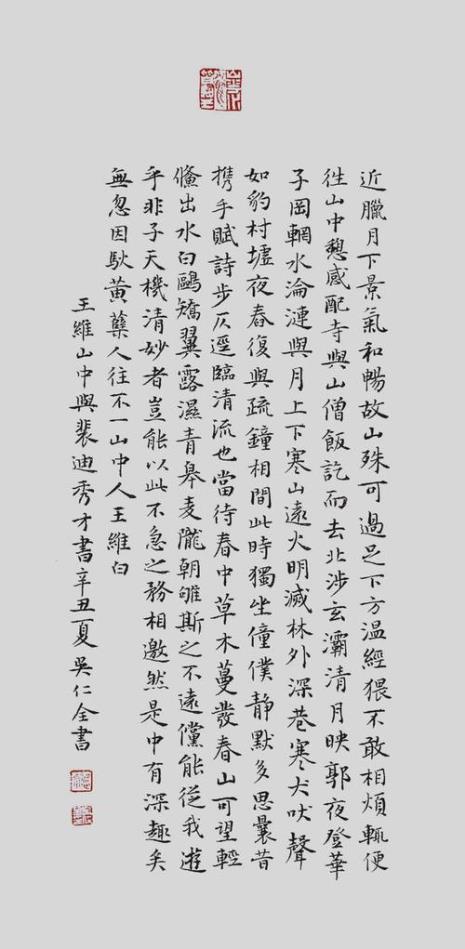 近臘月下景氣和暢故山殊可過足下方温經猥不敢相煩輒便
往山中憩感配寺與山僧飯訖而去北涉玄灞清月映郭夜登華
子岡輞水淪漣與月上下寒山遠火明滅林外深巷寒犬吠聲
如豹村墟夜舂復與疏鐘相間此時獨坐僮僕靜默多思曩昔
携手賦詩步仄逕臨清流也當待春中草木蔓發春山可望輕
鯈出水白鷗矯翼露濕青皋麦隴朝雊斯之不遠儻能從我遊
乎非子天機清妙者豈能以此不急之務相邀然是中有深趣矣
無忽因馱黃蘗人往不一山中人王維白
王維山中與裴迪秀才書辛丑夏吳仁全書